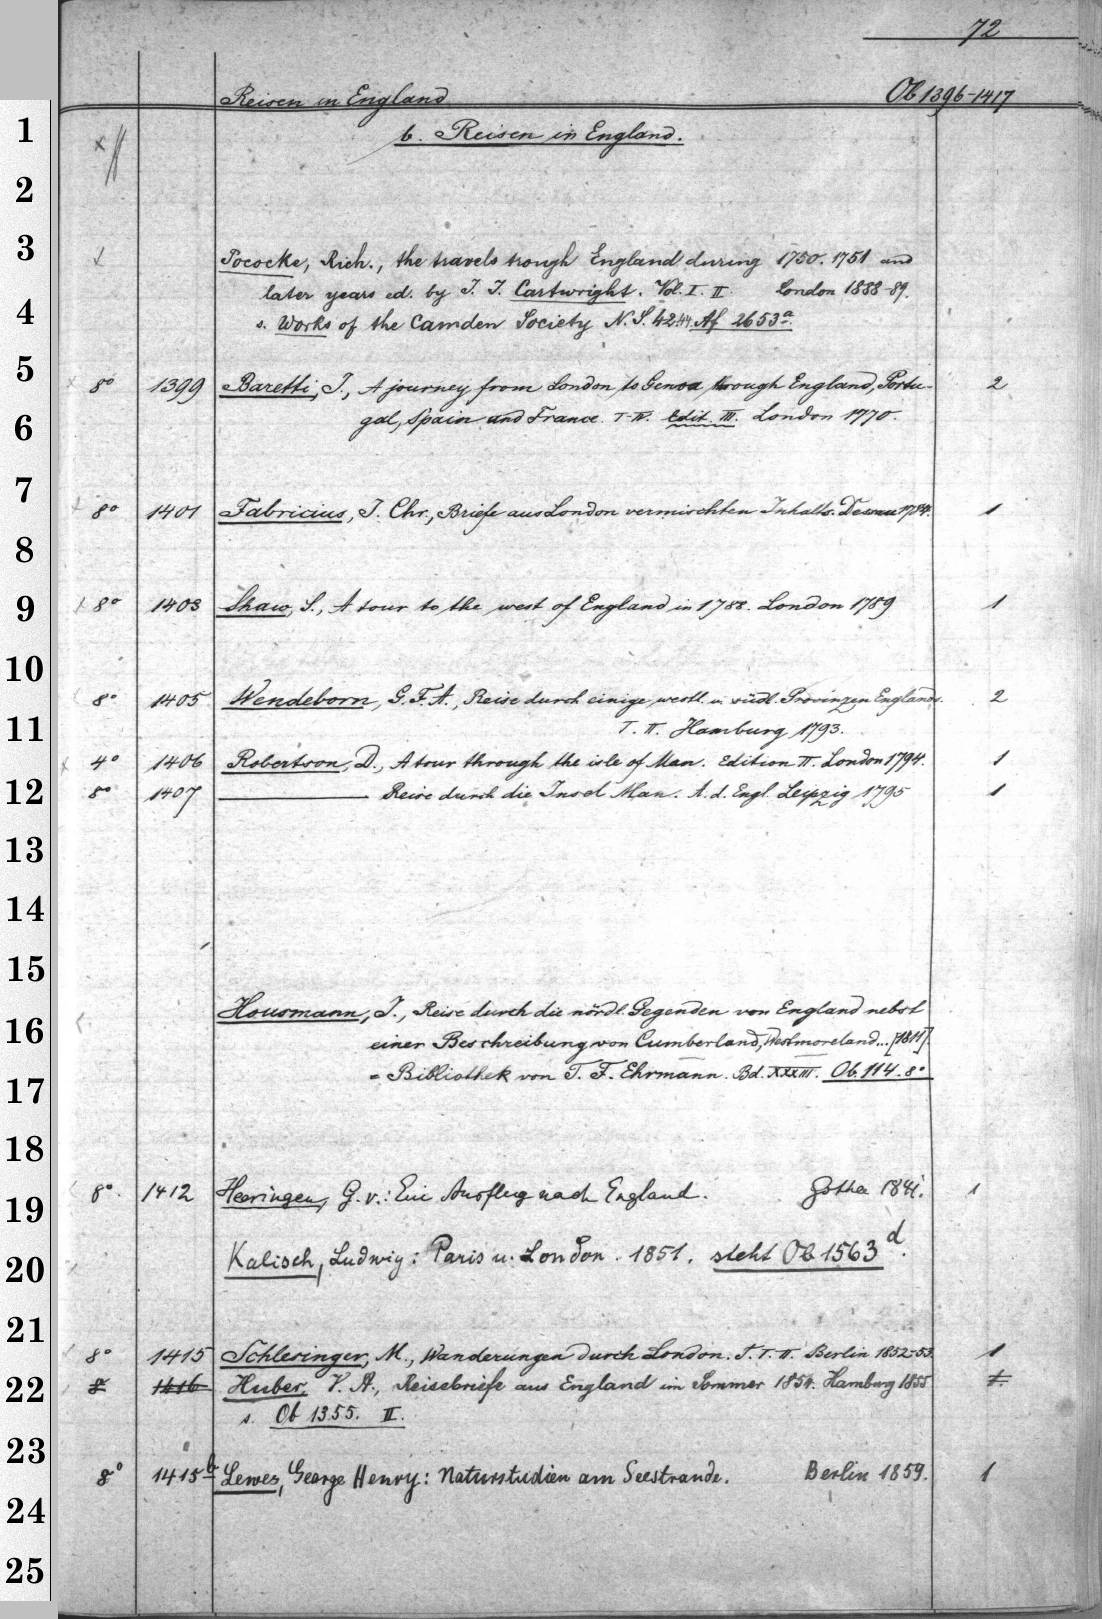 72
Reisen in England Ob 1396-1417
b. Reisen in England.
Pococke, Rich., the travels trough England during 1750. 1751 and
later years ed. by J. J. Cartwright. Vol. I. II London 1888-89.
s. Works of the Camden Society N. S. 42.44. Af 2653a.
8° 1399 Baretti, J., A journey from London to Genoa through England, Portu- 2
gal, Spain and France. T-IV. Edit. III. London 1770.
8° 1401 Fabricius, J. Chr., Briefe aus London vermischten Inhalts. Dessau 1784. 1
8° 1403 Shaw, S., A tour to the west of England in 1788. London 1789 1
8° 1405 Wendeborn, G. F. A., Reise durch einige westl. u. südl. Provinzen Englands. 2
T. II. Hamburg 1793.
4° 1406 Robertson, D., A tour through the isle of Man. Edition II. London 1794. 1
8° 1407 ——— Reise durch die Insel Man. A. d. Engl. Leipzig 1795 1
Housmann, J., Reise durch die nördl. Gegenden von England nebst
einer Beschreibung von Cumberland, Westmoreland... [1811].
= Bibliothek von T. F. Ehrmann. Bd. XXXIII. Ob. 114. 8°
8°. 1412 Heeringen, G. v.: Ein Ausflug nach England. Gotha 1841. 1
Kalisch, Ludwig: Paris u. London. 1851. steht Ob 1563d.
8° 1415 Schlesinger, M., Wanderungen durch London. I. T. II. Berlin 1852-53. 1
1416 Huber. V. A., Reisebriefe aus England im Sommer 1854. Hamburg 1855
s. Ob 1355. II.
8° 1415b Lewes, George Henry: Naturstudien am Seestrande. Berlin 1859. 1
1
2
3
4
5
6
7
8
9
10
11
12
13
14
15
16
17
18
19
20
21
22
23
24
25